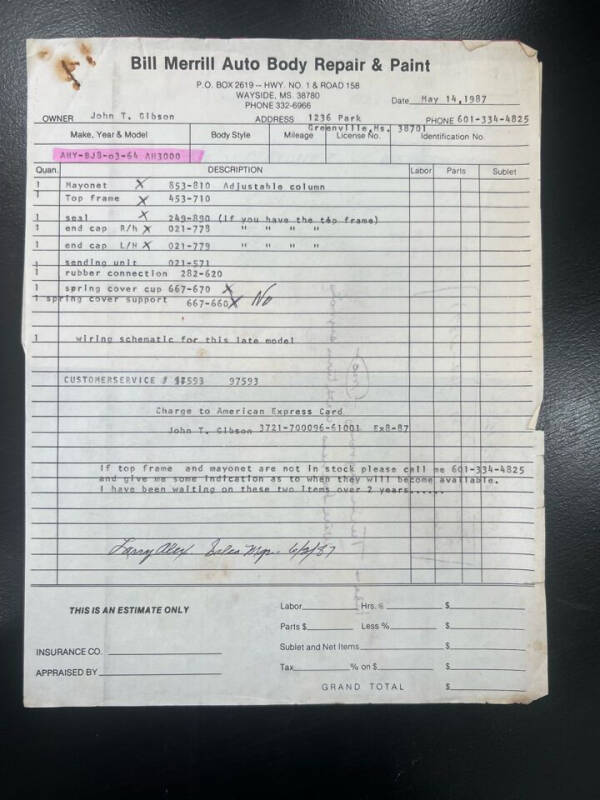 Bill Merrill Auto Body Repair & Paint
P.O. BOX 2619 -- HWY. NO. 1 & ROAD 158
WAYSIDE, MS. 38780
PHONE 332-6966
Date May 14,1987
OWNER John T. Gibson ADDRESS 1236 Park PHONE 601-334-4825
Greenville,Ms. 38701
Make, Year & Model Body Style Mileage License No. Identification No.
AHY-BJ8-03-64 AH3000
Quan. DESCRIPTION Labor Parts Sublet
1 Mayonet X 853-810 Adjustable column
1 Top frame X 453-710
1 seal X 249-890 (If you have the top frame)
1 end cap R/h X 021-778 " " " "
1 end cap L/H X 021-779 " " " "
1 sending unit 021-571
1 rubber connection 282-620
1 spring cover cup 667-670 X
1 spring cover support 667-660 X No
1 wiring schematic for this late model
CUSTOMERSERVICE # 97593
Charge to American Express Card
John T. Gibson 3721-700096-61001 Ex8-87
If top frame and mayonet are not in stock please call me 601-334-4825
and give me some indication as to when they will become available.
I have been waiting on these two items over 2 years......
Larry Alex Sales Mgr.
THIS IS AN ESTIMATE ONLY
Labor Hrs. @ $
Parts $ Less % $
INSURANCE CO. Sublet and Net Items $
APPRAISED BY Tax % on $ $
GRAND TOTAL $